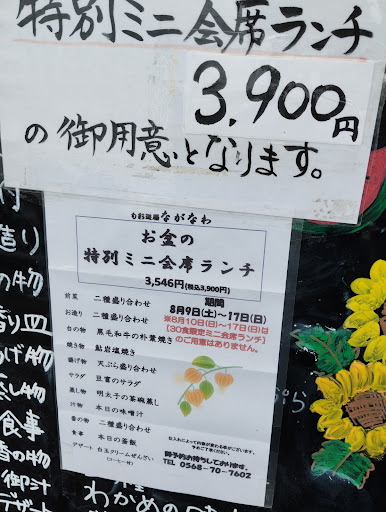 特別ミニ会席ランチ
3,900円
の御用意となります。
ながなわ
お盆の
特別ミニ会席ランチ
3,546円(税込3,900円)
期間
8月9日(土)〜17日(日)
※8月10日(日)〜17日(日)は
【30食限定ミニ会席ランチ】
のご用意はありません。
前菜 二種盛り合わせ
お造り 二種盛り合わせ
台の物 黒毛和牛の朴葉焼き
焼き物 鮎岩塩焼き
揚げ物 天ぷら盛り合わせ
サラダ 豆富のサラダ
蒸し物 明太子の茶碗蒸し
汁物 本日の味噌汁
香の物 二種盛り合わせ
食事 本日の釜飯
デザート 白玉クリームぜんざい
(コーヒー付)
仕入れによって内容が変わる事がございます。
予めご了承ください。
御予約お待ちしております。
TEL 0568-70-7602
造り
の物
り皿
げ物
蒸し物
食事
香の物
御汁
デザート
ぷら
わかめの